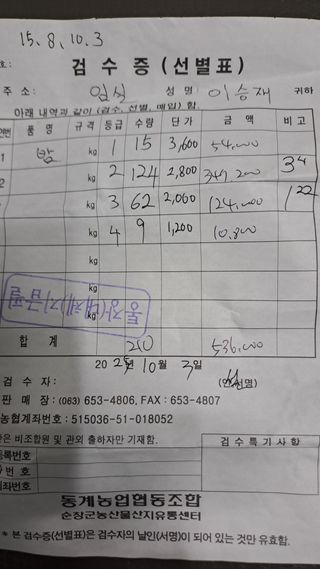 15. 8, 10. 3
호:
검 수 증 (선별표)
주 소: 임실 성 명: 이승재 귀하
아래 내역과 같이 (검수, 선별, 매입) 함.
품 명 규 격 등급 수량 단 가 금 액 비 고
1 밤 kg 1 15 3,600 54,000
2 kg 2 124 2,800 347,200 34
kg 3 62 2,000 124,000 122
kg 4 9 1,200 10,800
kg
kg
kg
통장(대체)지급필
합 계 210 536,000
20 25년 10월 3일
검 수 자: (인)서명)
판 매 장: (063) 653-4806, FAX : 653-4807
농협계좌번호 : 515036-51-018052
란은 비조합원 및 관외 출하자만 기재함. 검 수 특 기 사 항
등록번호
번 호
좌번호
동계농업협동조합
순창군농산물산지유통센터
* 본 검수증(선별표)은 검수자의 날인(서명)이 되어 있는 것만 유효함.